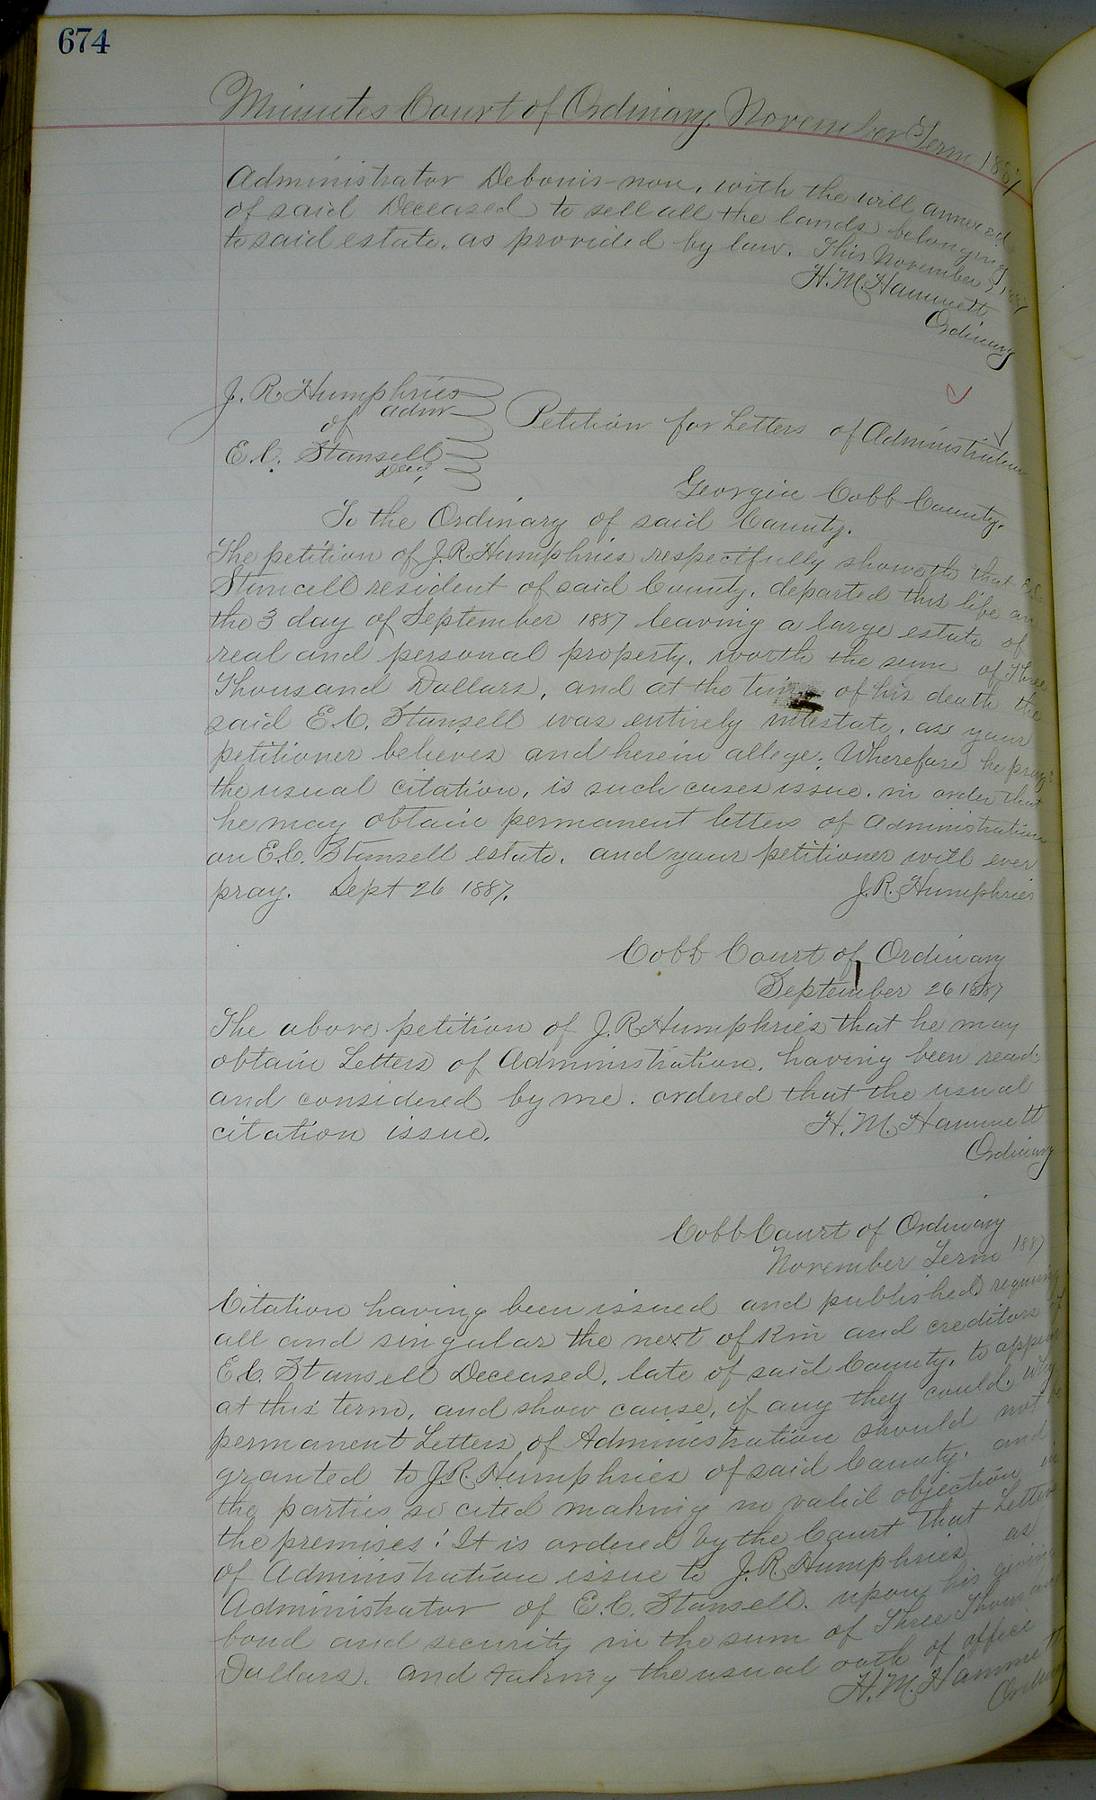 674
Minutes Court of Ordinary November Term 1887
Administrator Debonis-non, with the will annexed
of said Deceased to sell all the lands belonging
to said estate. as provided by law. This November 7, 1887
H. M. Hammett
Ordinary
J. R. Humphries
Admr
of
E. C. Stansell
Decd,
Petition for Letters of Administration
Georgia Cobb County.
To the Ordinary of said County.
The petition of J. R. Humphries respectfully showeth that E. C.
Stancell resident of said County. departed this life on
the 3 day of September 1887 leaving a large estate of
real and personal property, worth the sum of Three
Thousand Dollars, and at the time of his death the
said E. C. Stansell was entirely intestate. as your
petitioner believes and herein allege: Wherefore he prays
the usual citation, is such cases issue. in order that
he may obtain permanent letters of Administration
on E. C. Stansell estate. and your petitioner will ever
pray. Sept 26 1887.
J. R. Humphries
Cobb Court of Ordinary
September 26 1887
The above petition of J. R. Humphries that he may
obtain Letters of Administration, having been read
and considered by me. ordered that the usual
citation issue.
H. M. Hammett
Ordinary
Cobb Court of Ordinary
November Term 1887
Citation having been issued and published requiring
all and singular the next of Kin and creditors of
E. C. Stansell Deceased, late of said County. to appear
at this term, and show cause, if any they could. why
permanent Letters of Administration should not be
granted to J. R. Humphries of said County. and
the parties so cited making no valid objection in
the premises! It is ordered by the Court that Letters
of Administration issue to J. R. Humphries as
Administrator of E. C. Stansell. upon his giving
bond and security in the sum of Three Thousand
Dollars. and taking the usual oath of office
H. M. Hammett
Ordinary